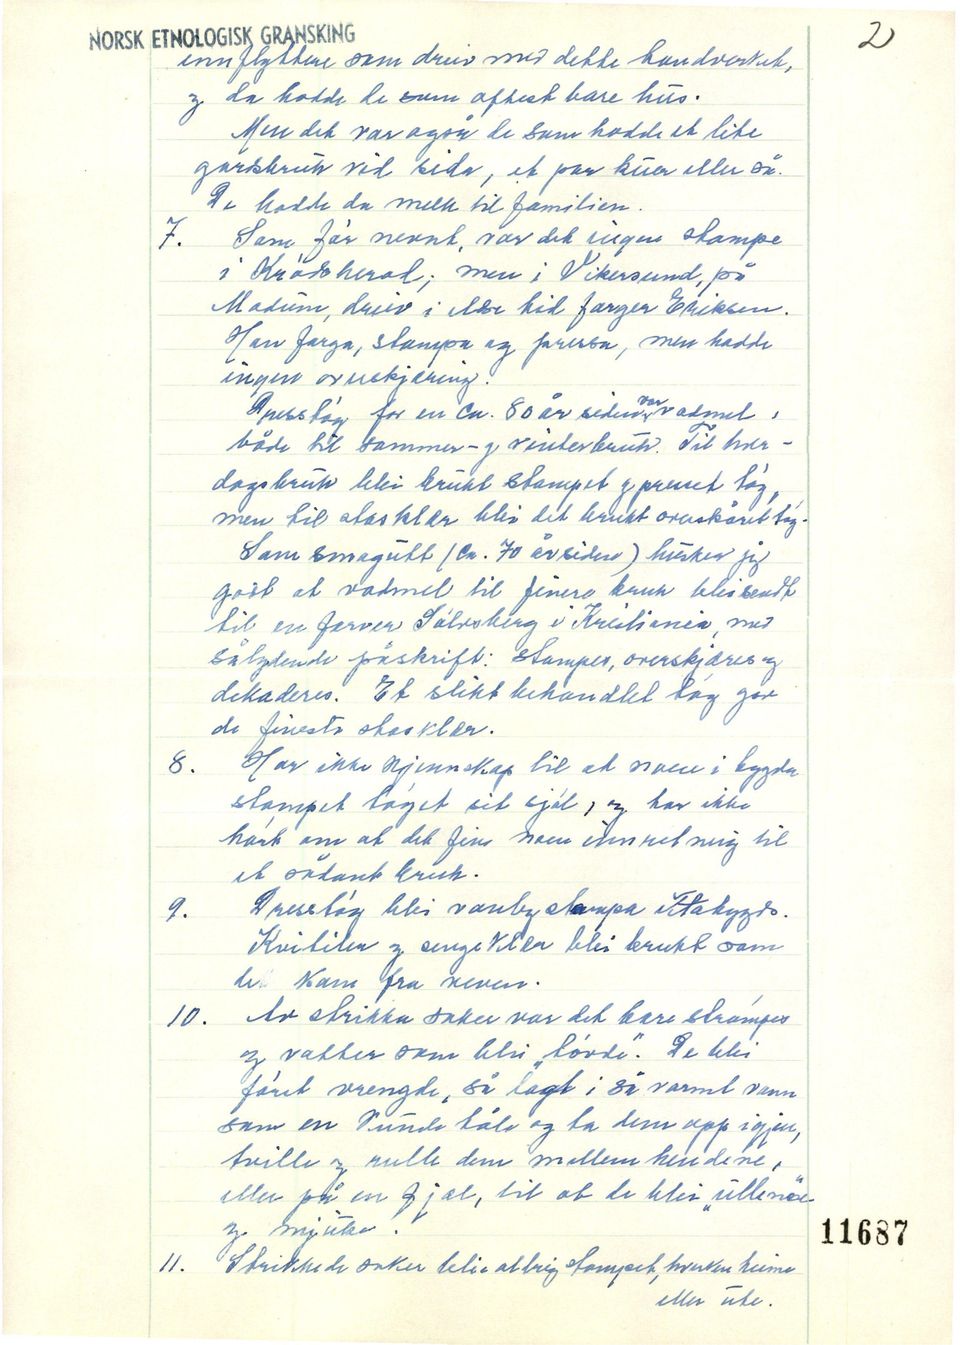 NORSK ETNOLOGISK GRANSKING
2
innflyttere som dreiv med dette handverket,
og da hadde de som oftest bare hus.
Men det var også de som hadde et lite
gardsbruk ved sida, et par kuer eller så.
De hadde da melk til familien.
7. Som før nevnt, var det ingen stampe
i Krødsherad; men i Vikersund, på
Modum, dreiv i den tid farger Eriksen.
Han farga, stampa og pressa, men hadde
ingen overskjæring.
Dresstøy for en ca. 80 år siden var vadmel,
både til sommer- og vinterbruk. Til hver-
dagsbruk blei brukt stampet og presset tøy,
men til stasklær blei det brukt overskåret tøy.
Som smågutt (ca. 70 år siden) husker jeg
godt at vadmel til finere bruk blei sendt
til en farver Sølvsberg i Kristiania, med
sålydende påskrift: Stampes, overskjæres og
dekaderes. Et slikt behandlet tøy gav
de fineste stasklær.
8. Har ikke kjennskap til at noen i bygda
stampet tøyet sit sjøl, og har ikke
hørt om at det fins noen innretning til
et sådant bruk.
9. Dresstøy blei vanlig stampa utabygds.
Kvitiler og sengeklær blei brukt som
det kom fra veven.
10. Av strikka saker var det bare strømper
og vatter som blei "tøvde". De blei
føret vrengde, så lagt i så varmt vann
som en kunde tåle og ta dem opp igjen,
tville og rulle dem mellem hendene,
eller på en fjøl, til at de blei "ullne
og mjuke".
11. Strikkede saker blei aldrig stampet, hverken heime
eller ute.
11687